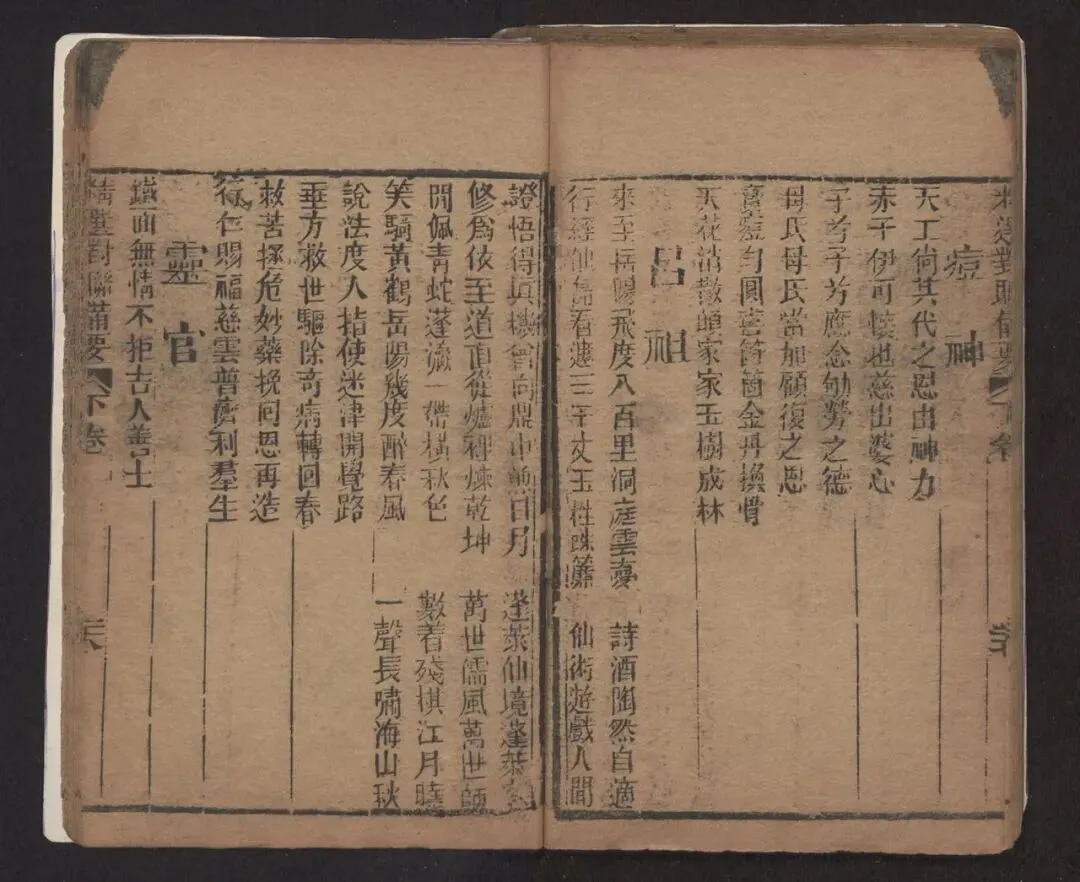 痘神
天工尙其代之恩出神力
赤子伊可懷也慈出婆心
子兮子兮應念劬勞之德
母氏母氏當加顧復之恩
寶靨勻圓壹箇箇金丹換骨
天花消散顆家家玉樹成林
呂祖
來至岳陽飛度八百里洞庭雲夢
詩酒陶然自適
行經仙島看濃三千丈玉性珠簾
仙術遊戲人間
證悟得眞機會向鼎中煎日月
蓬萊仙境蓬萊
修爲依至道直從爐裡煉乾坤
萬世儒風萬世師
閒佩靑蛇蓬瀛一帶橫秋色
數着殘棋江月曉
笑騎黃鶴岳陽幾度醉春風
一聲長嘯海山秋
說法度人指使迷津開覺路
垂方救世驅除奇病轉回春
救苦拯危妙藥挽回恩再造
行仁賜福慈雲普濟利羣生
靈官
鐵面無情不拒吉人善士
精選對聯備要 下卷